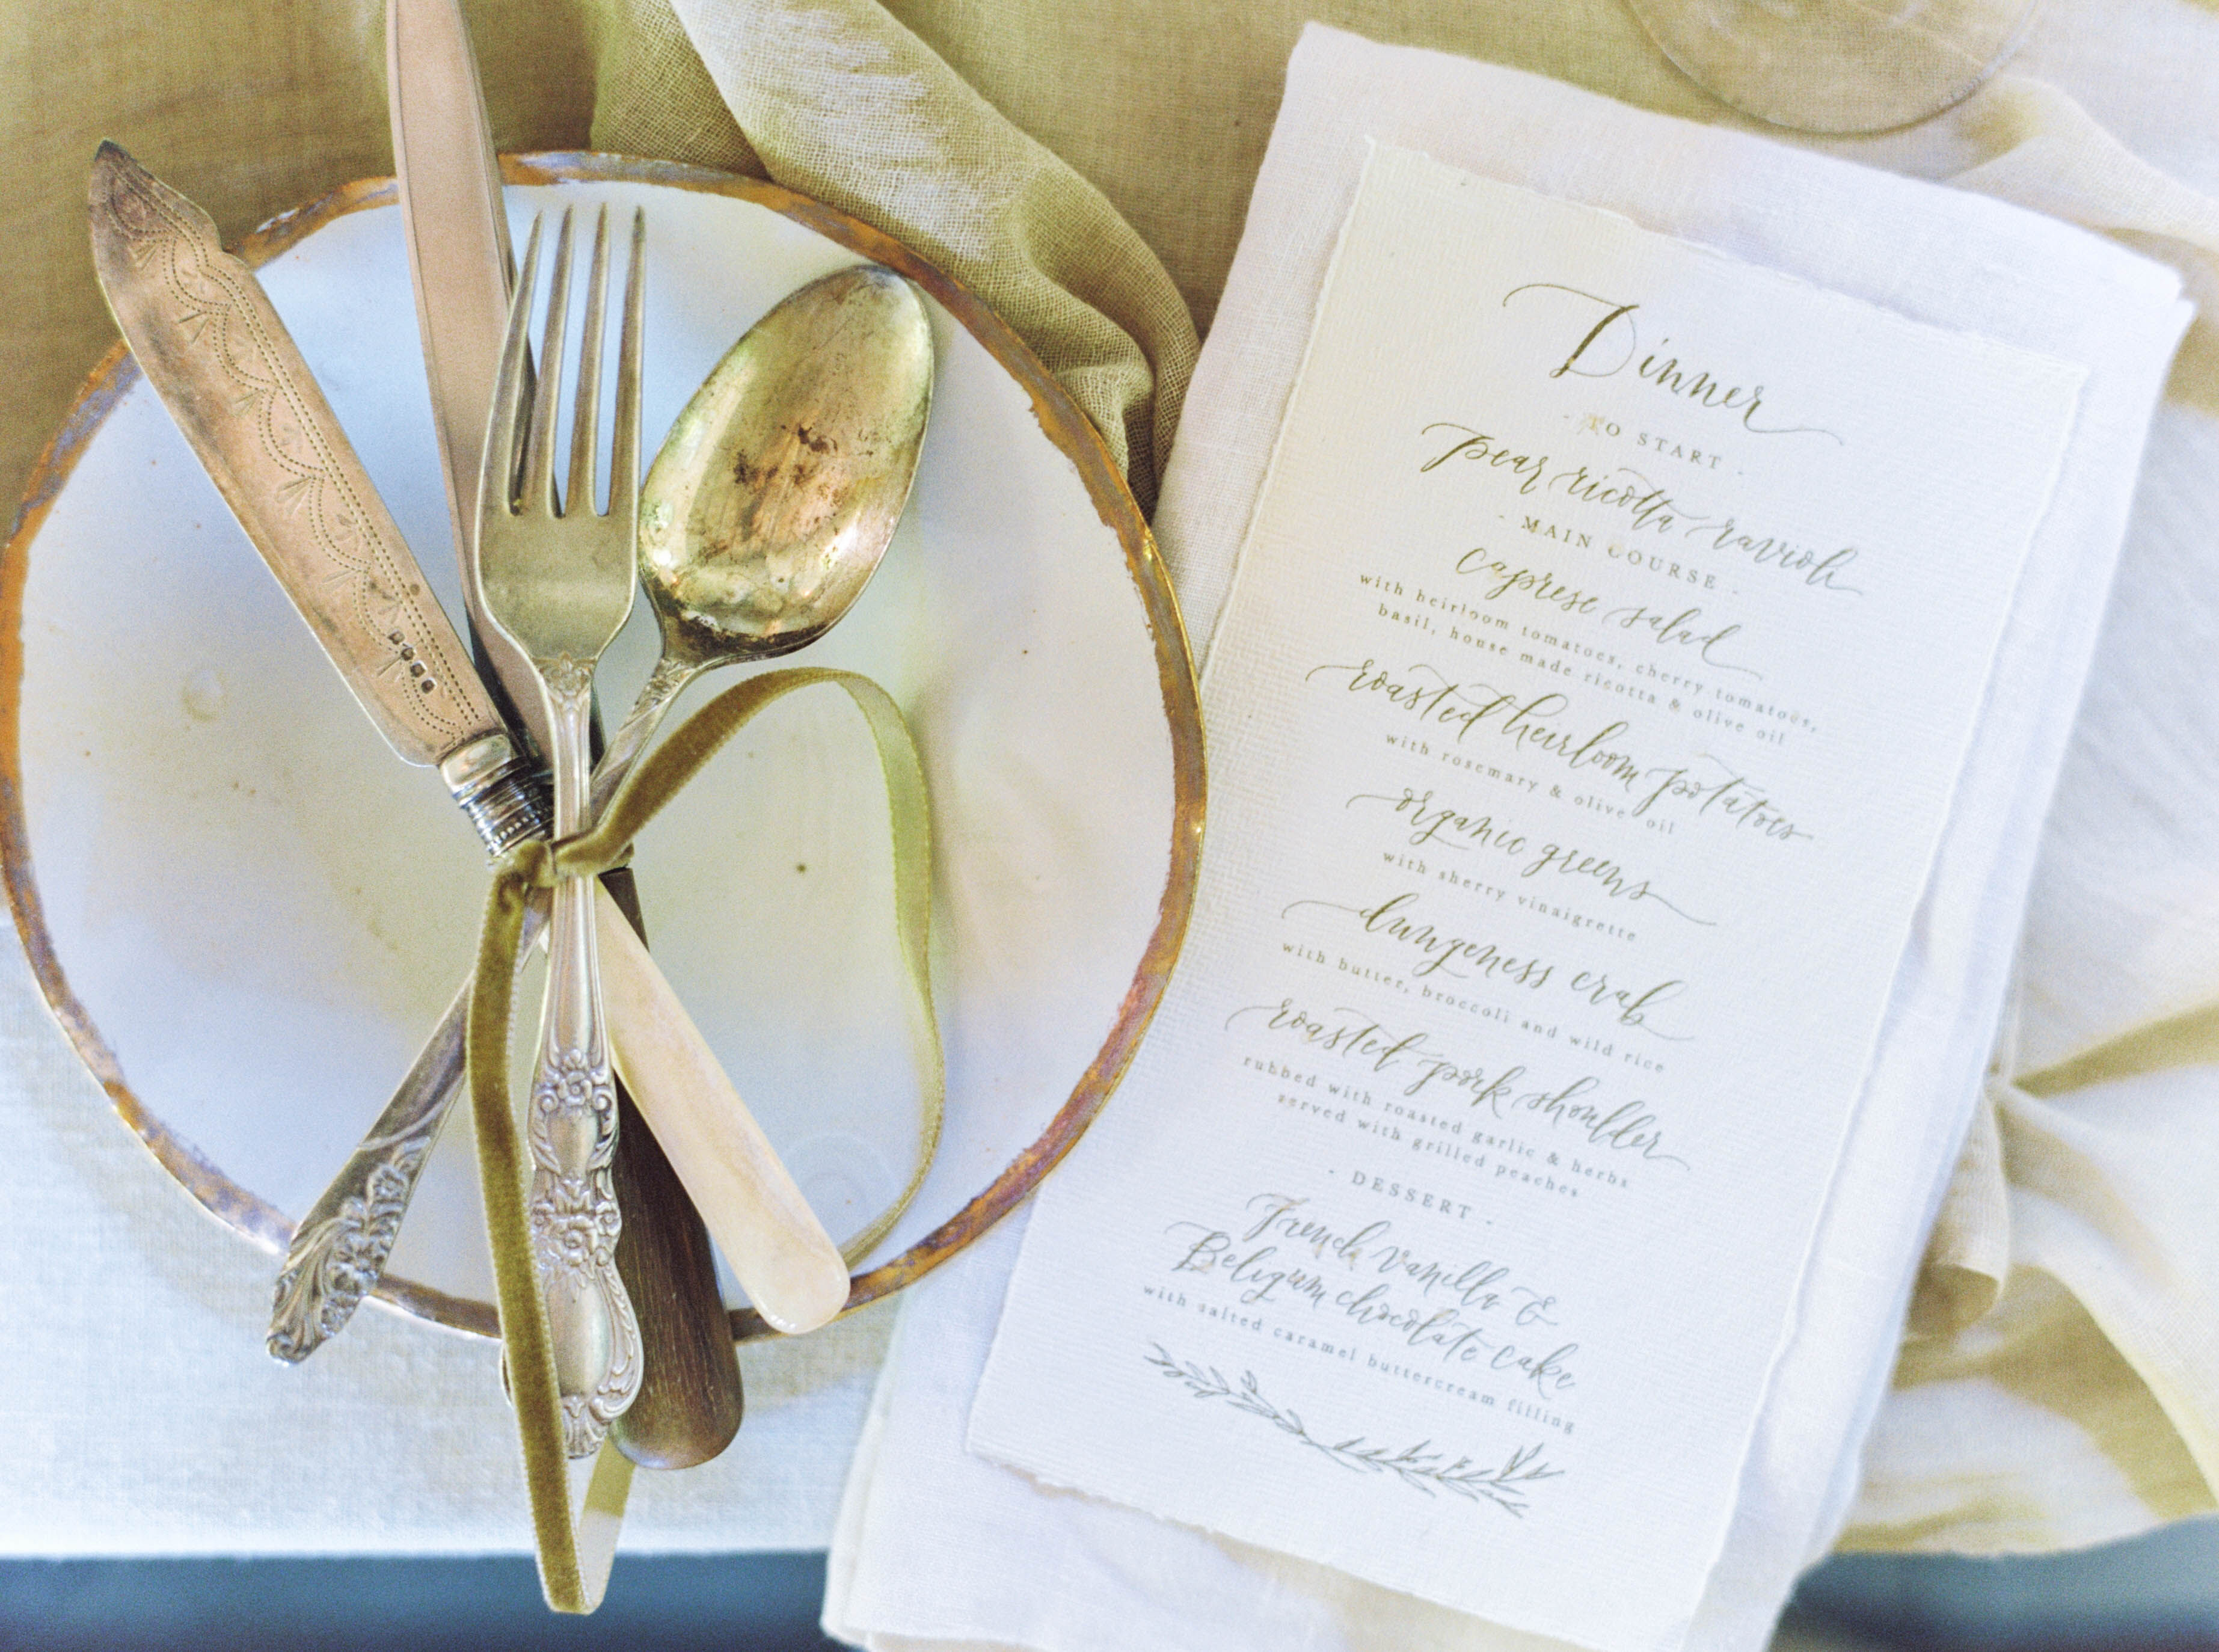 Dinner
- TO START -
pear ricotta ravioli
- MAIN COURSE -
caprese salad
with heirloom tomatoes, cherry tomatoes,
basil, house made ricotta & olive oil
roasted heirloom potatoes
with rosemary & olive oil
organic greens
with sherry vinaigrette
dungeness crab
with butter, broccoli and wild rice
roasted pork shoulder
rubbed with roasted garlic & herbs
served with grilled peaches
- DESSERT -
French vanilla &
Beligum chocolate cake
with salted caramel buttercream filling